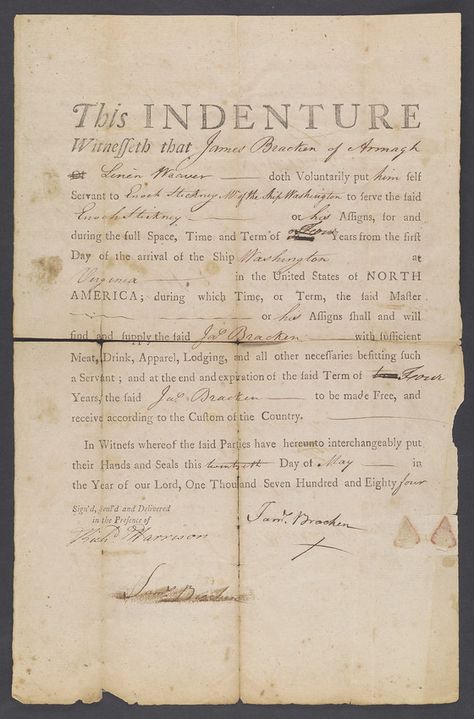 This INDENTURE
Witnesseth that James Bracken of Armagh
Linen Weaver doth Voluntarily put him self
Servant to Enoch Stickney Mr. of the Ship Washington to serve the said
Enoch Stickney or his Assigns, for and
during the full Space, Time and Term of Four Years from the first
Day of the arrival of the Ship Washington at
Virginea in the United States of NORTH
AMERICA; during which Time, or Term, the said Master
or his Assigns shall and will
find and supply the said Jas. Bracken with sufficient
Meat, Drink, Apparel, Lodging, and all other necessaries befitting such
a Servant; and at the end and expiration of the said Term of Four
Years, the said Jas. Bracken to be made Free, and
receive according to the Custom of the Country.
In Witness whereof the said Parties have hereunto interchangeably put
their Hands and Seals this twentyeth Day of May in
the Year of our Lord, One Thousand Seven Hundred and Eighty four
Sign'd, Seal'd and Delivered
in the Presence of
Richd. Harrison
Jams. Bracken
X
Jams. Bracken